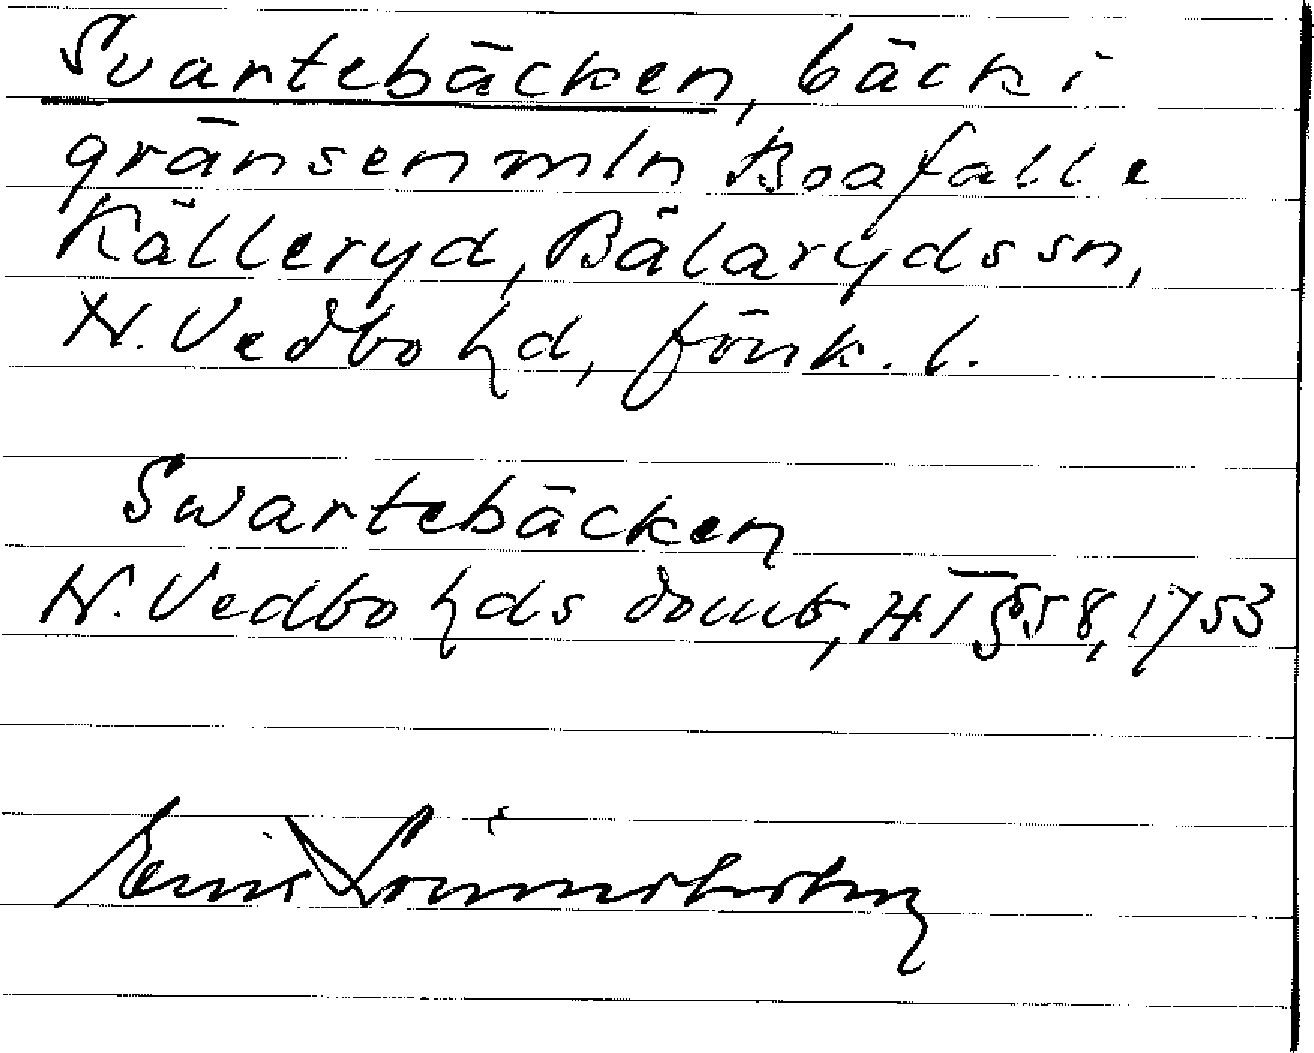 Svartebäcken, bäck i
gränsen mln Boafalle
Källeryd, Bälaryds sn,
N. Vedbo hd, Jönk. l.
Swartebäcken
N. Vedbo hds domb, HT § 58, 1753